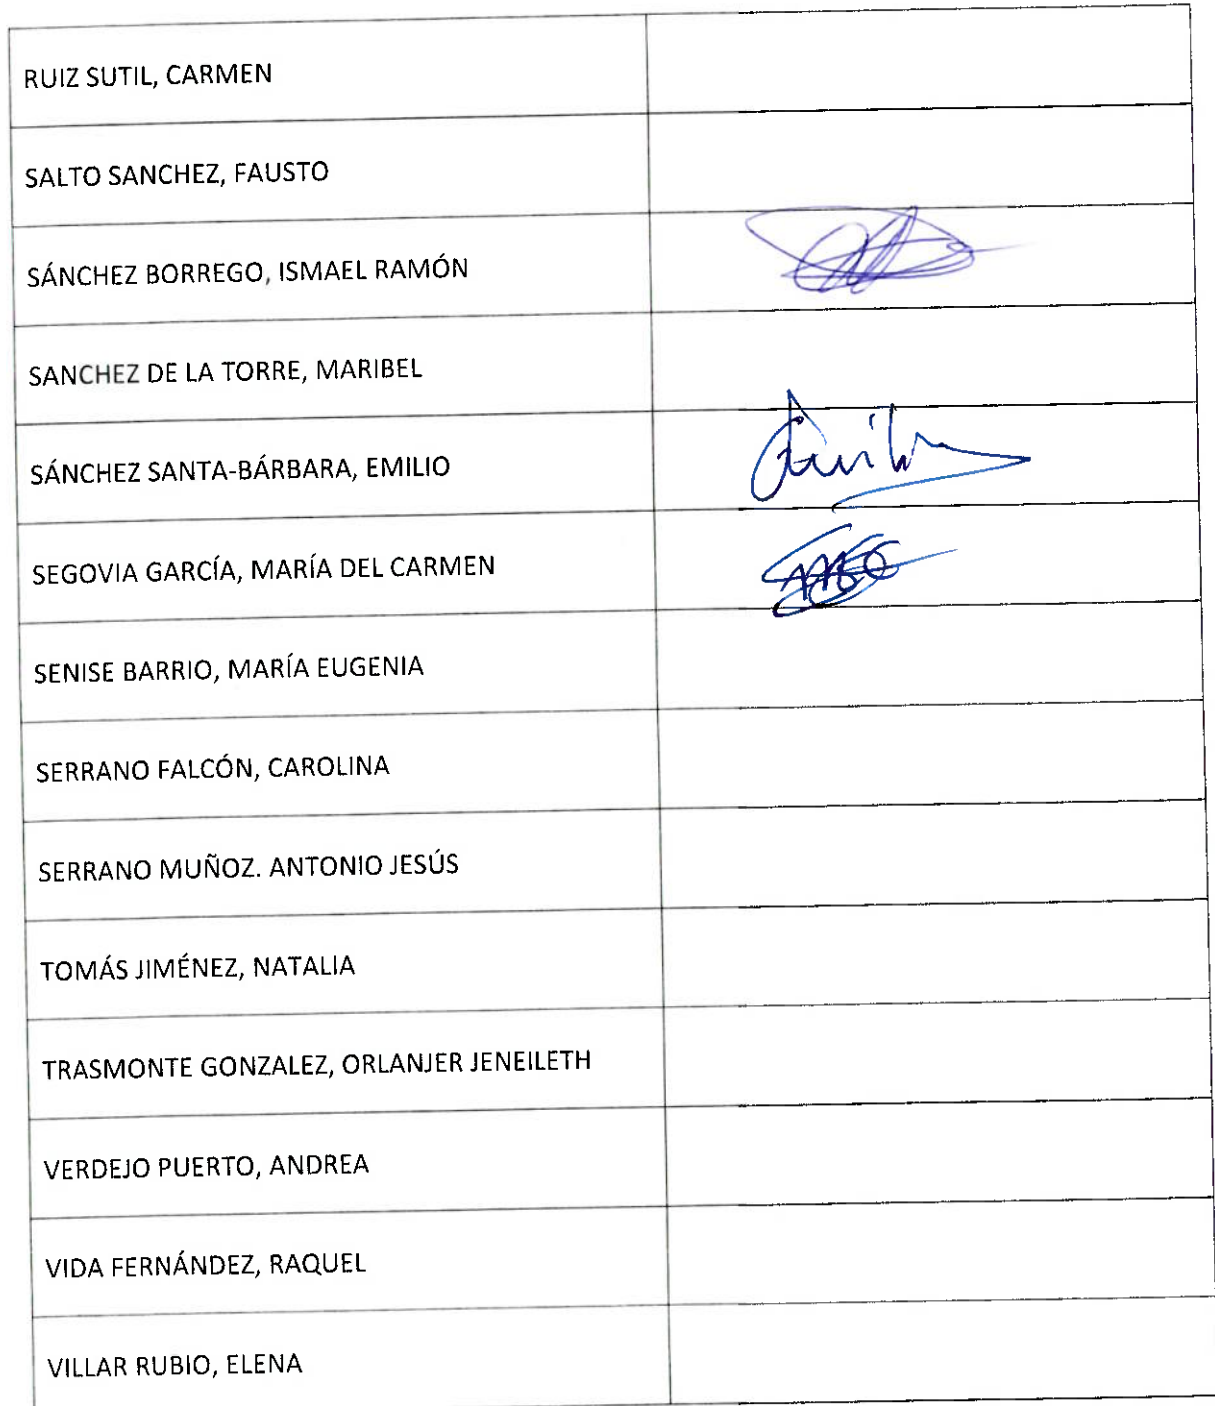 RUIZ SUTIL, CARMEN
SALTO SANCHEZ, FAUSTO
SÁNCHEZ BORREGO, ISMAEL RAMÓN
SANCHEZ DE LA TORRE, MARIBEL
SÁNCHEZ SANTA-BÁRBARA, EMILIO
SEGOVIA GARCÍA, MARÍA DEL CARMEN
SENISE BARRIO, MARÍA EUGENIA
SERRANO FALCÓN, CAROLINA
SERRANO MUÑOZ. ANTONIO JESÚS
TOMÁS JIMÉNEZ, NATALIA
TRASMONTE GONZALEZ, ORLANJER JENEILETH
VERDEJO PUERTO, ANDREA
VIDA FERNÁNDEZ, RAQUEL
VILLAR RUBIO, ELENA